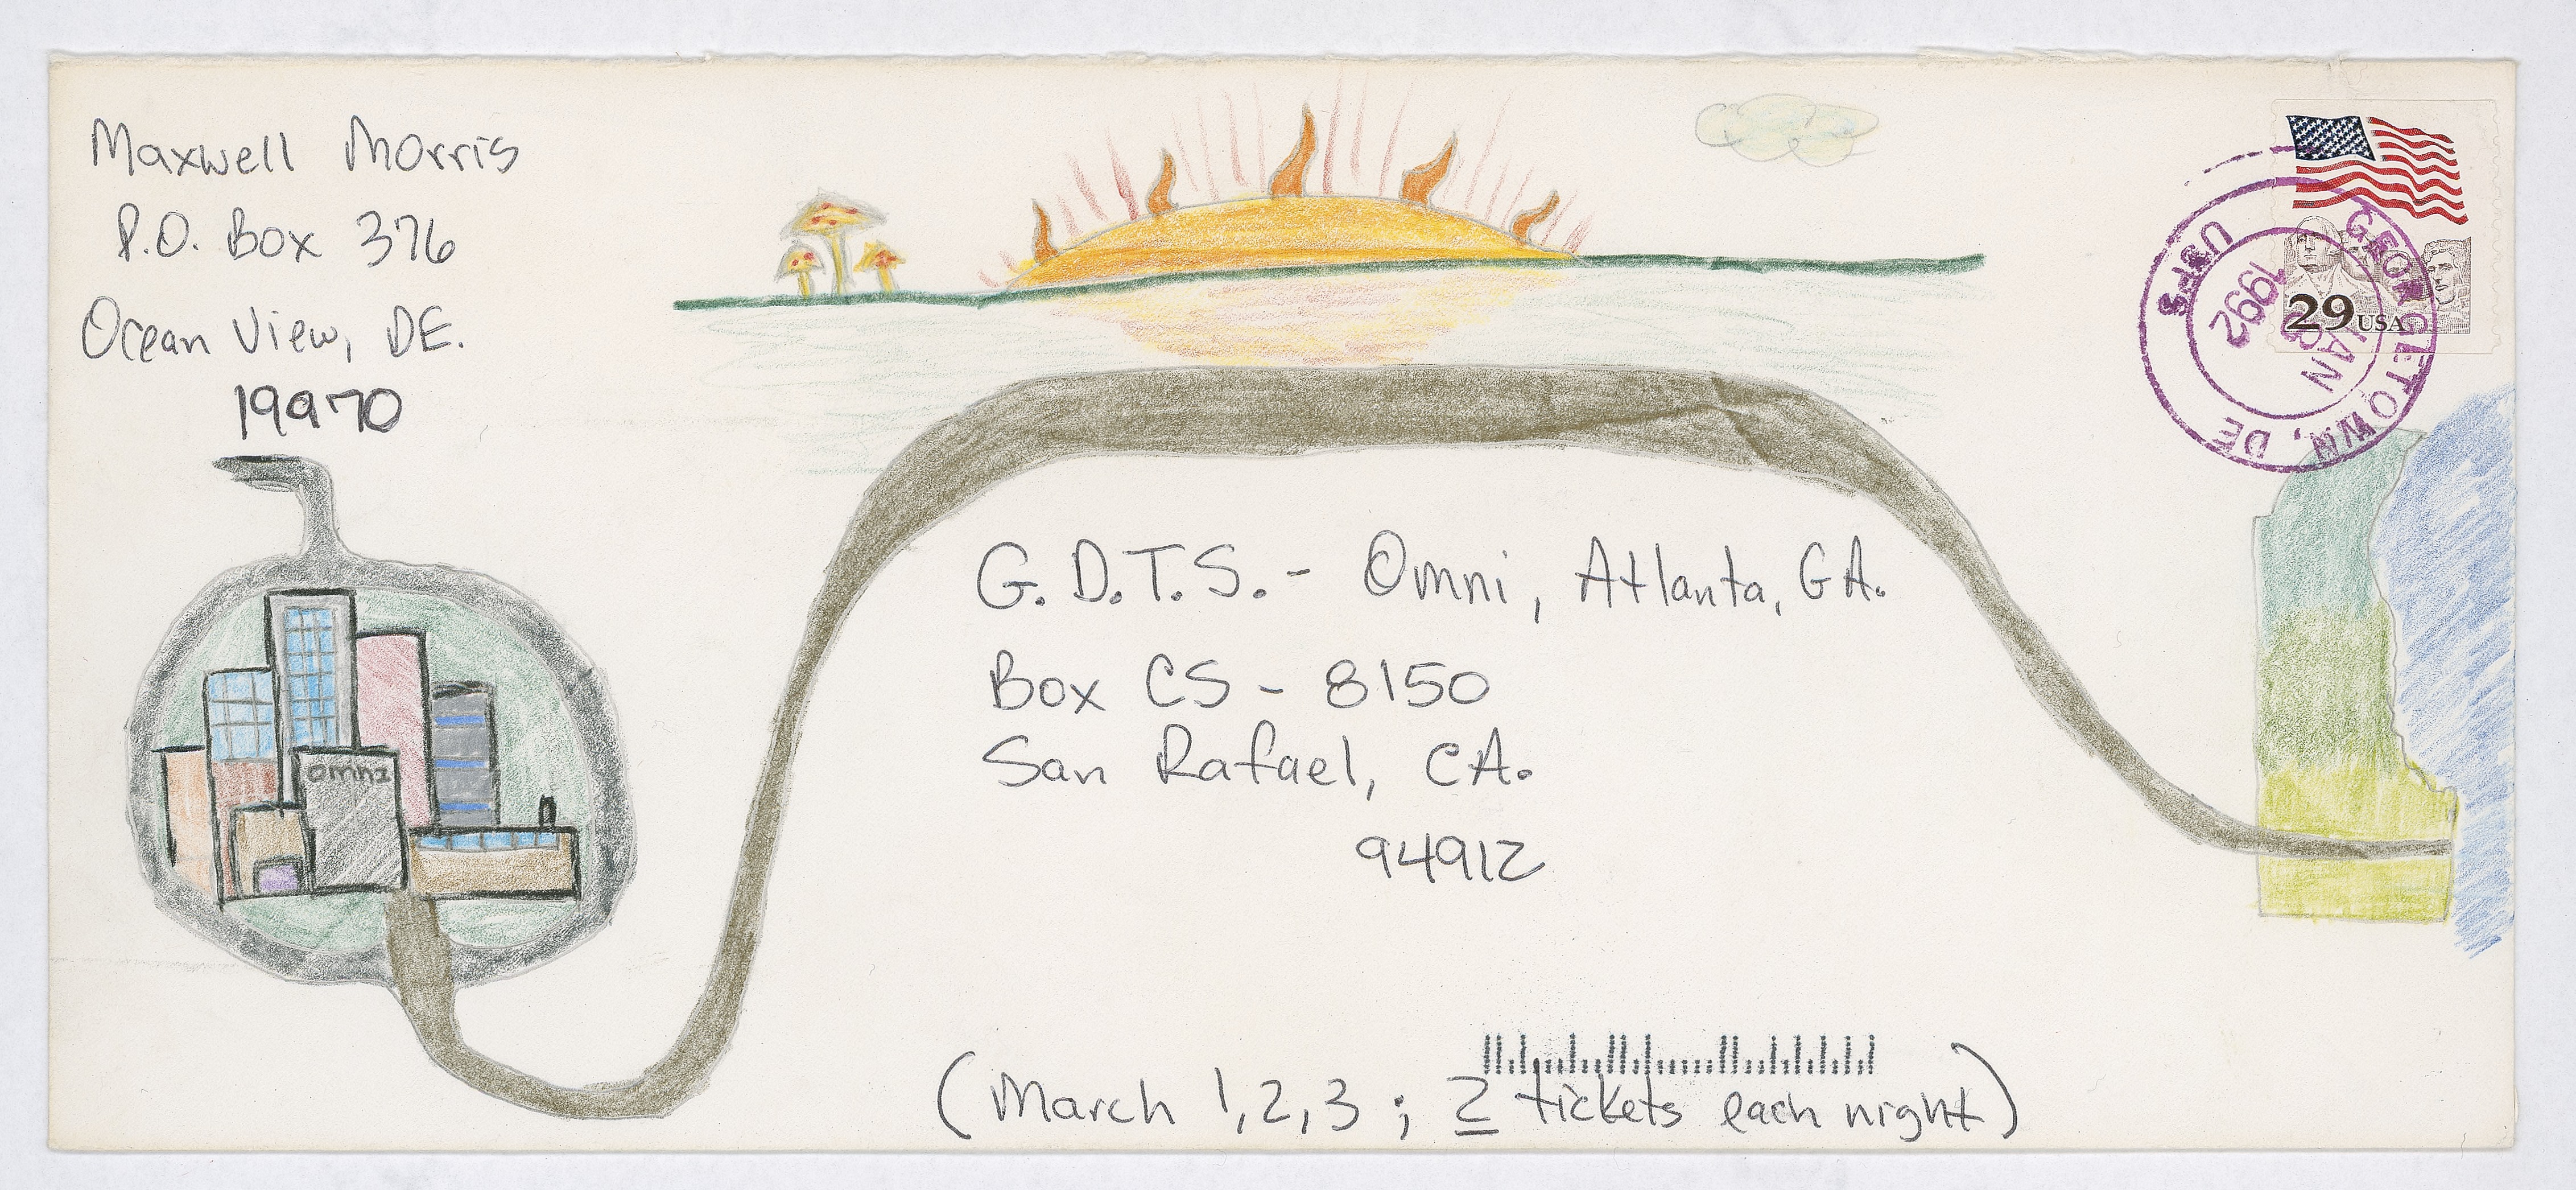 Maxwell Morris
P.O. Box 376
Ocean View, DE.
19970
29 USA
USPS
GEORGETOWN, DE
JAN
1992
G.D.T.S.- Omni, Atlanta, GA.
Box CS - 8150
San Rafael, CA.
94912
omni
(March 1,2,3 ; 2 tickets each night)